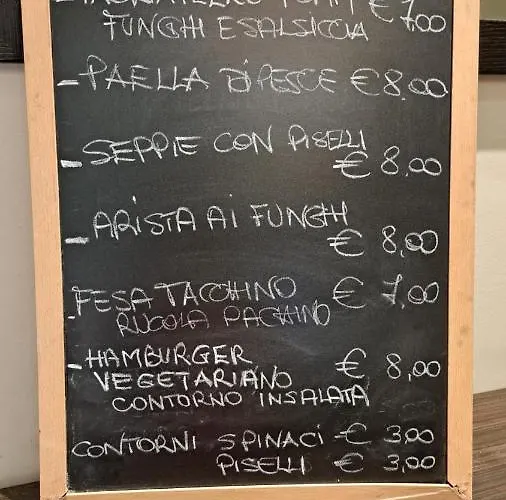 € 7,00
FUNGHI E SALSICCIA
- PAELLA DI PESCE € 8,00
- SEPPIE CON PISELLI
€ 8,00
- ARISTA AI FUNGHI
€ 8,00
- FESA TACCHINO € 7,00
RUCOLA PACHINO
- HAMBURGER € 8,00
VEGETARIANO
CONTORNO INSALATA
CONTORNI SPINACI € 3,00
PISELLI € 3,00